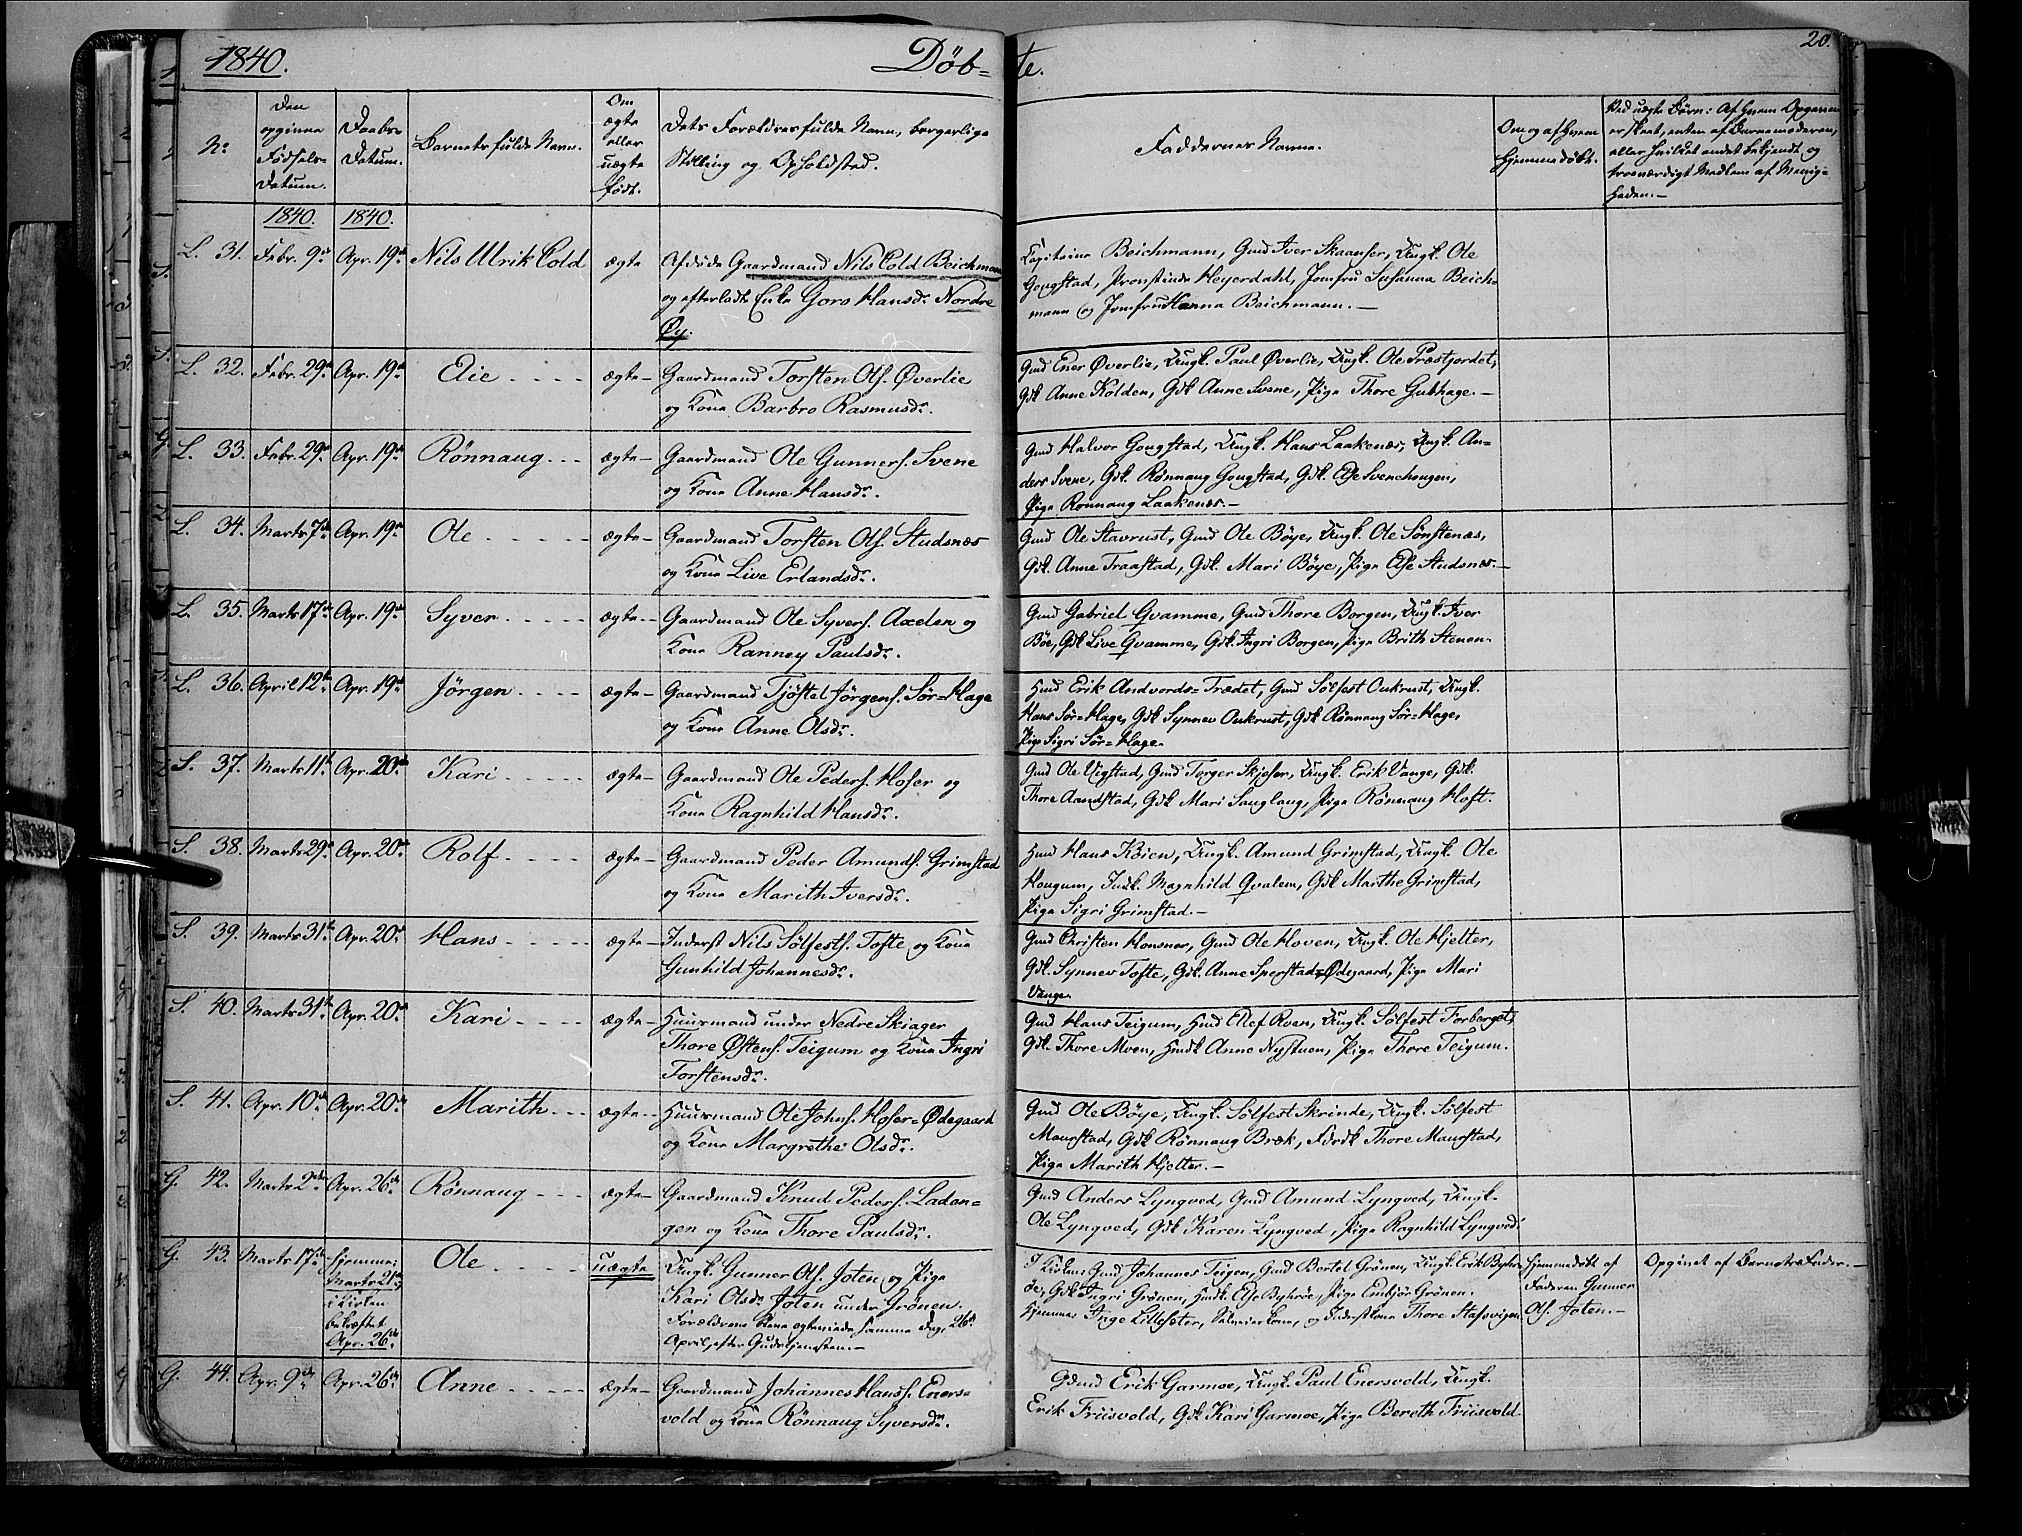 1840.
Døb=
te.
20.
No
Den opgivne Fødsels-Datum.
Daabs-Datum.
Barnets fulde Navn.
Om ægte eller uægte født.
Dets Forældres fulde Navn, borgerlige Stilling og Opholdsted.
Faddernes Navne.
Om og af hvem hjemmedøbt.
Ved uægte Børn: Af hvem Opgaven er skeet, enten af Barnemoderen, eller hvilket andet bekjendt og troværdigt Medlem af Menigheden.—
1840. 1840.
L. 31. Febr. 9de Apr. 19de Nils Ulrik Cold ægte Afdøde Gaardmand Nils Cold Beichmann
og efterladte Enke Goro Hansdr. Nordre
Øy.
Capitaine Beichmann, Gmd Iver Skaanser, Ungk. Ole
Gougstad, Provstinde Heyerdahl, Jomfru Susanna Beich-
mann og Jomfru Hanna Beichmann.—
L. 32. Febr. 29de Apr. 19de Elie ægte— Gaardmand Torsten Ols. Øverlie
og Kone Barbro Rasmusdr.
Gmd Ener Øverlie, Ungk. Paul Øverlie, Ungk. Ole Præstjordet,
Gdk Anne Kolden, Gdk Anne Svene, Pige Thore Gubhage.—
L. 33. Febr. 29de Apr. 19de Rönnaug ægte— Gaardmand Ole Gunners. Svene
og Kone Anne Hansdr.
Gmd Halvor Gougstad, Ungk. Hans Laakenæs, Ungk. An-
ders Svene, Gdk. Rønnaug Gougstad, Gdk. Else Svenehougen,
Pige Rønnaug Laakenæs.—
L. 34. Marts 7de Apr. 19de Ole ægte— Gaardmand Torsten Ols. Studsnæs
og Kone Live Erlandsdr.
Gmd Ole Stavrust, Gmd Ole Böye, Ungk. Ole Sönstenæs,
Gdk. Anne Traastad, Gdk. Mari Böye, Pige Else Studsnæs.—
L. 35. Marts 17de Apr. 19de Syver ægte— Gaardmand Ole Syvers. Axelen og
Kone Ranney Paulsdr.
Gmd Gabriel Qvamme, Gmd Thore Borgen, Ungk. Iver
Böe, Gdk Live Qvamme, Gdk. Ingri Borgen, Pige Brith Stenen.
L. 36. April 12te Apr. 19de Jörgen ægte— Gaardmand Tjøstel Jörgens. Sör=Hage
og Kone Anne Olsdr.
Hmd Erik Andvords=Trædet, Gmd Sølfest Oukrust, Ungk.
Hans Sör=Hage, Gdk Synnev Oukrust, Gdk Rönnaug Sör=Hage,
Pige Sigri Sör=Hage.
S. 37. Marts 11te Apr. 20de Kari ægte— Gaardmand Ole Peders. Hofer og
Kone Ragnhild Hansdr.
Gmd Ole Vigstad, Gmd Torger Skjeser, Ungk. Erik Vange, Gdk.
Thore Aandstad, Gdk Mari Sauglang, Pige Rönnaug Hoft.
S. 38. Marts 29de Apr. 20de Rolf ægte— Gaardmand Peder Amunds. Grimstad
og Kone Marith Iversdr.
Hmd Hans Köien, Ungk. Amund Grimstad, Ungk. Ole
Hougum, Indk. Magnhild Qvalem, Gdk Marthe Grimstad,
Pige Sigri Grimstad.—
S. 39. Marts 31te Apr. 20de Hans ægte— Inderst Nils Sølfests. Tofte og Kone
Gunhild Johannesdr.
Gmd Christen Housner, Gmd Ole Hoven, Ungk. Ole Hjelter,
Gdk. Synnev Tofte, Gdk. Anne Sperstad=Ødegaard, Pige Mari
Vange.
S. 40. Marts 31te Apr. 20de Kari ægte— Huusmand under Nedre Skjager
Thore Østens. Teigum og Kone Ingri
Torstensdr.
Gmd Hans Teigum, Hmd Elef Roen, Ungk. Sølfest Forberget,
Gdk. Thore Moen, Hmdk Anne Nystuen, Pige Thore Teigum.
S. 41. Apr. 10de Apr. 20de Marith ægte— Huusmand Ole Johns. Hofer=Ødegaard
og Kone Margrethe Olsdr.
Gmd Ole Böye, Ungk. Sølfest Skrinde, Ungk. Sölfest
Maurstad, Gdk Rönnaug Bræk, Fdrdk Thore Maurstad,
Pige Marith Hjelter.—
G. 42. Marts 2den Apr. 26de Rönnaug ægte— Gaardmand Knud Peders. Ladan=
gen og Kone Thore Paulsdr.
Gmd Anders Lyngved, Gmd Amund Lyngved, Ungk.
Ole Lyngved, Gdk Karen Lyngved, Pige Ragnhild Lyngved.
G. 43. Marts 17de hjemme: Marts 21de, i Kirken bekræftet Apr. 26de Ole uægte Ungk. Gunner Ols. Joten og Pige
Kari Olsdr. Joten under Grönen.
Forældrene bleve ægteviede samme Dag, 26de
April, efter Gudstjenesten.—
I Kirken Gmd Johannes Teigen, Gmd Bertel Grönen, Ungk. Erik Byhrö-
öe, Gdk Ingri Grönen, Hmdk. Else Byhröe, Pige Embjör Grönen.
Hjemme: Inge Lillester, og Inderstkone Thore Stafsvigen.
Hjemmedöbt af
Faderen Gunner
Ols. Joten.—
Opgivet af Barnets Fader.—
G. 44. Apr. 9de Apr. 26de Anne ægte— Gaardmand Johannes Hanss. Eners-
vold og Kone Rönnaug Syversdr.
Gdmd Erik Garmoe, Ungk. Paul Enersvold, Ungk.
Erik Friisvold, Gdk Kari Garmoe, Pige Bereth Friisvold